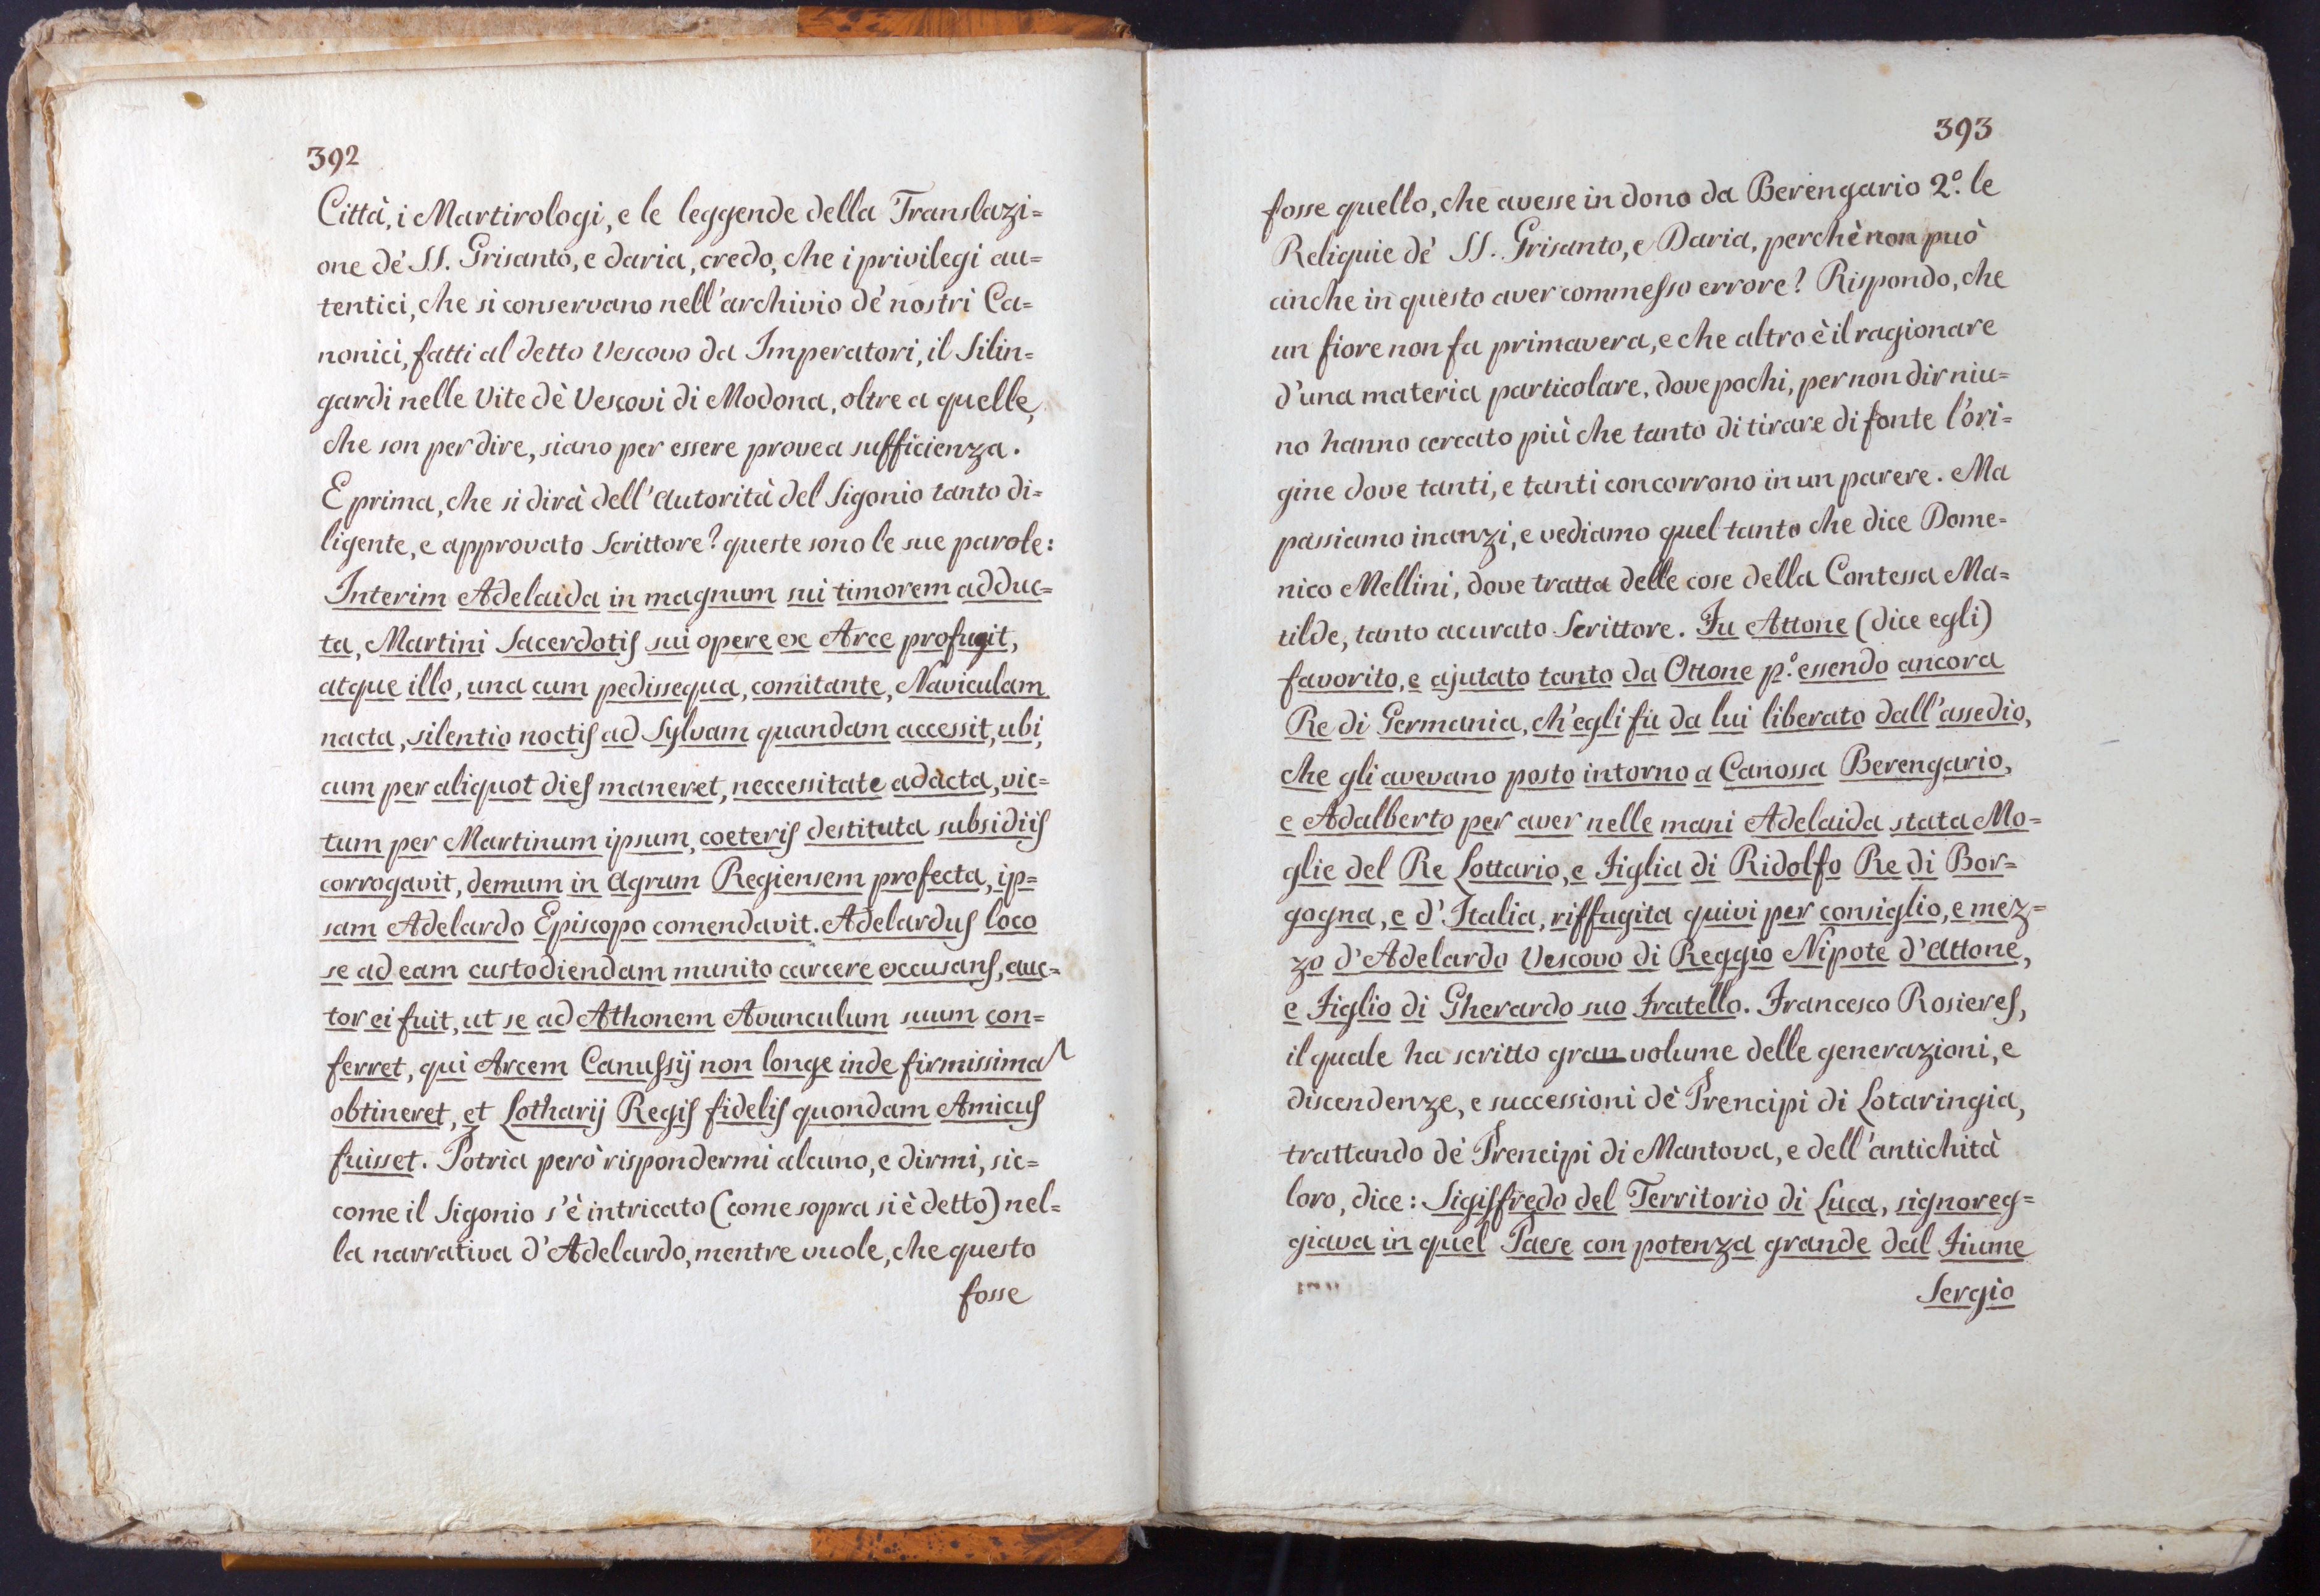 392
Città, i Martirologi, e le leggende della Translazi=
one dè SS. Grisanto, e daria, credo, che i privilegi au=
tentici, che si conservano nell'archivio dè nostri Ca=
nonici, fatti al detto Vescovo da Imperatori, il Silin=
gardi nelle Vite dè Vescovi di Modona, oltre a quelle,
che son per dire, siano per essere prove a sufficienza.
E prima, che si dirà dell'autorità del Sigonio tanto di=
ligente, e approvato Scrittore? queste sono le sue parole:
Interim Adelaida in magnum sui timorem adduc=
ta, Martini Sacerdotis sui opere ex Arce profugit,
atque illo, una cum pedissequa, comitante, Naviculam
nacta, silentio noctis ad Sylvam quandam accessit, ubi,
cum per aliquot dies maneret, neccessitate adacta, vic=
tum per Martinum ipsum, coeteris destituta subsidiis
corrogavit, demum in Agrum Regiensem profecta, ip=
sam Adelardo Episcopo comendavit. Adelardus loco
se ad eam custodiendam munito carcere excusans, auc=
tor ei fuit, ut se ad Athonem Avunculum suum con=
ferret, qui Arcem Canussij non longe inde firmissima
obtineret, et Lotharij Regis fidelis quondam Amicus
fuisset. Potria però rispondermi alcuno, e dirmi, sic=
come il Sigonio s'è intricato (come sopra si è detto) nel=
la narrativa d'Adelardo, mentre vuole, che questo
fosse
393
fosse quello, che avesse in dono da Berengario 2.º le
Reliquie dè SS. Grisanto, e Daria, perchè non può
anche in questo aver commesso errore? Rispondo, che
un fiore non fa primavera, e che altro è il ragionare
d'una materia particolare, dove pochi, per non dir niu=
no hanno cercato più che tanto di tirare di fonte l'ori=
gine dove tanti, e tanti concorrono in un parere. Ma
passiamo inanzi, e vediamo quel tanto che dice Dome=
nico Mellini, dove tratta delle cose della Contessa Ma=
tilde, tanto acurato Scrittore. Fu Attone (dice egli)
favorito, e ajutato tanto da Ottone p.º essendo ancora
Re di Germania, ch'egli fù da lui liberato dall'assedio,
che gli avevano posto intorno a Canossa Berengario,
e Adalberto per aver nelle mani Adelaida stata Mo=
glie del Re Lottario, e Figlia di Ridolfo Re di Bor=
gogna, e d'Italia, riffugita quivi per consiglio, e mez=
zo d'Adelardo Vescovo di Reggio Nipote d'Attone,
e Figlio di Gherardo suo Fratello. Francesco Rosieres,
il quale ha scritto gran volume delle generazioni, e
discendenze, e successioni dè Prencipi di Lotaringia,
trattando dè Prencipi di Mantova, e dell'antichità
loro, dice: Sigisfredo del Territorio di Luca, signoreg=
giava in quel Paese con potenza grande dal Fiume
Sergio